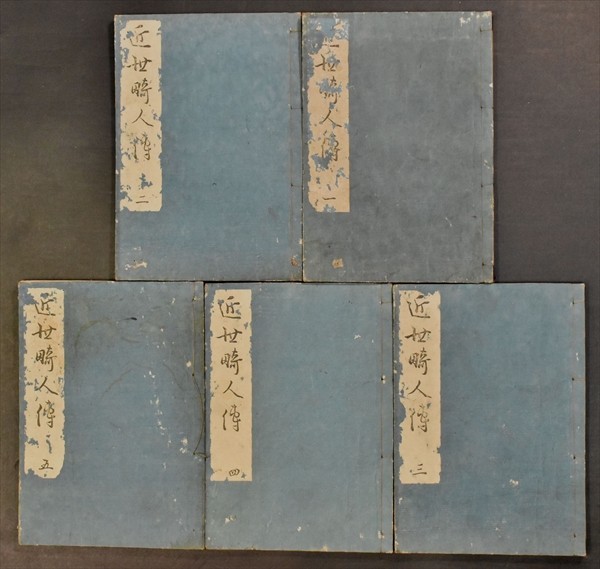 近世畸人傳 一
近世畸人傳 二
近世畸人傳 三
近世畸人傳 四
近世畸人傳 五